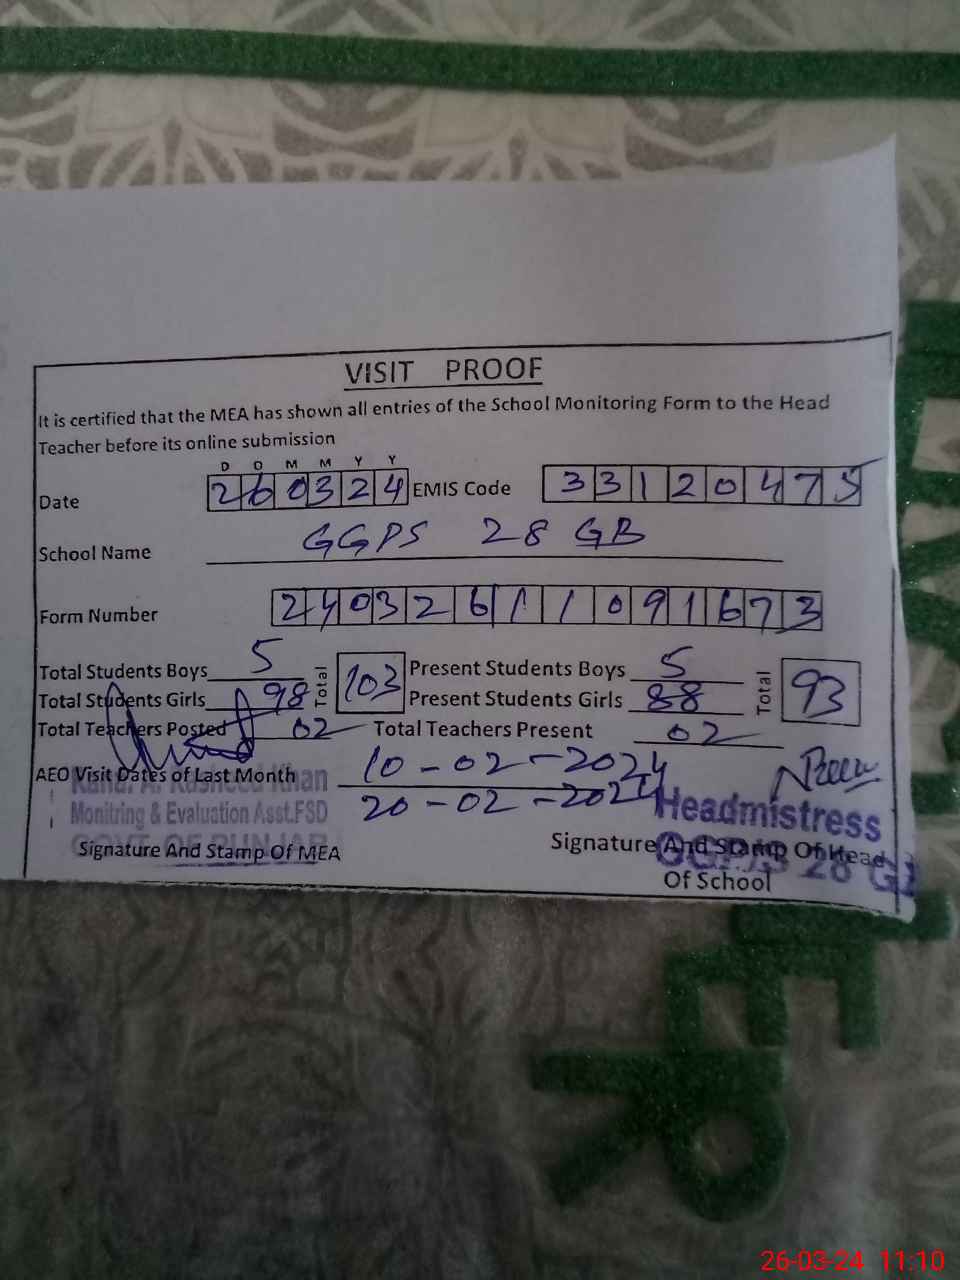 VISIT PROOF
It is certified that the MEA has shown all entries of the School Monitoring Form to the Head
Teacher before its online submission
D D M M Y Y
Date 260324 EMIS Code 33120475
School Name GGPS 28 GB
Form Number 2403261109 1673
Total Students Boys 5 Total 103 Present Students Boys 5 Total 93
Total Students Girls 98 Present Students Girls 88
Total Teachers Posted 02 Total Teachers Present 02
AEO Visit Dates of Last Month 10-02-2024
20-02-2024
Rana. A. Rasheed Khan
Monitring & Evaluation Asst.FSD
GOVT. OF PUNJAB
Signature And Stamp Of MEA
Headmistress
GGPS 28 GB
Signature And Stamp Of Head
Of School
26-03-24 11:10